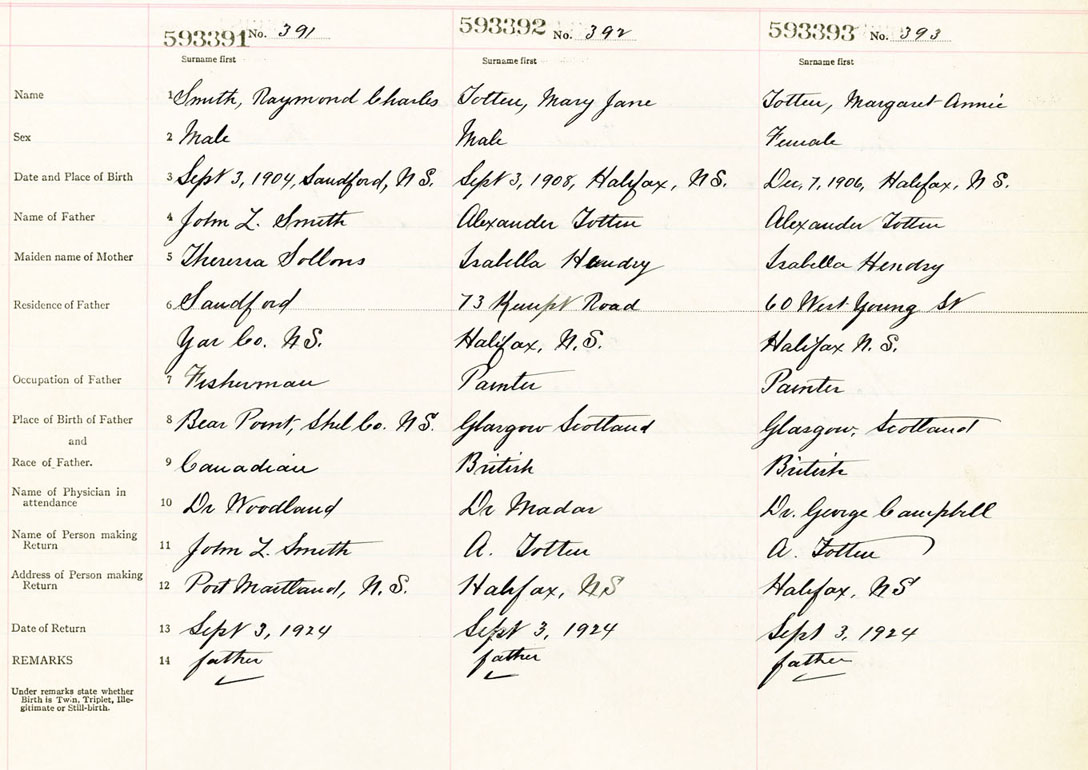 593391 No. 391 593392 No. 392 593393 No. 393
Surname first Surname first Surname first
Name 1 Smith, Raymond Charles Totten, Mary Jane Totten, Margaret Annie
Sex 2 Male Male Female
Date and Place of Birth 3 Sept 3, 1904, Sandford, N.S. Sept 3, 1908, Halifax, N.S. Dec. 7, 1906, Halifax, N.S.
Name of Father 4 John L. Smith Alexander Totten Alexander Totten
Maiden name of Mother 5 Theresa Sollows Isabella Hendry Isabella Hendry
Residence of Father 6 Sandford 73 Kempt Road 60 West Young St
Yar Co. N.S. Halifax, N.S. Halifax N.S.
Occupation of Father 7 Fisherman Painter Painter
Place of Birth of Father 8 Bear Point, Shel Co. N.S. Glasgow Scotland Glasgow, Scotland
and
Race of Father. 9 Canadian British British
Name of Physician in
attendance 10 Dr Woodland Dr Madar Dr. George Campbell
Name of Person making
Return 11 John L. Smith A. Totten A. Totten
Address of Person making
Return 12 Port Maitland, N.S. Halifax, NS Halifax, NS
Date of Return 13 Sept 3, 1924 Sept 3, 1924 Sept 3, 1924
REMARKS 14 father father father
Under remarks state whether
Birth is Twin, Triplet, Ille-
gitimate or Still-birth.